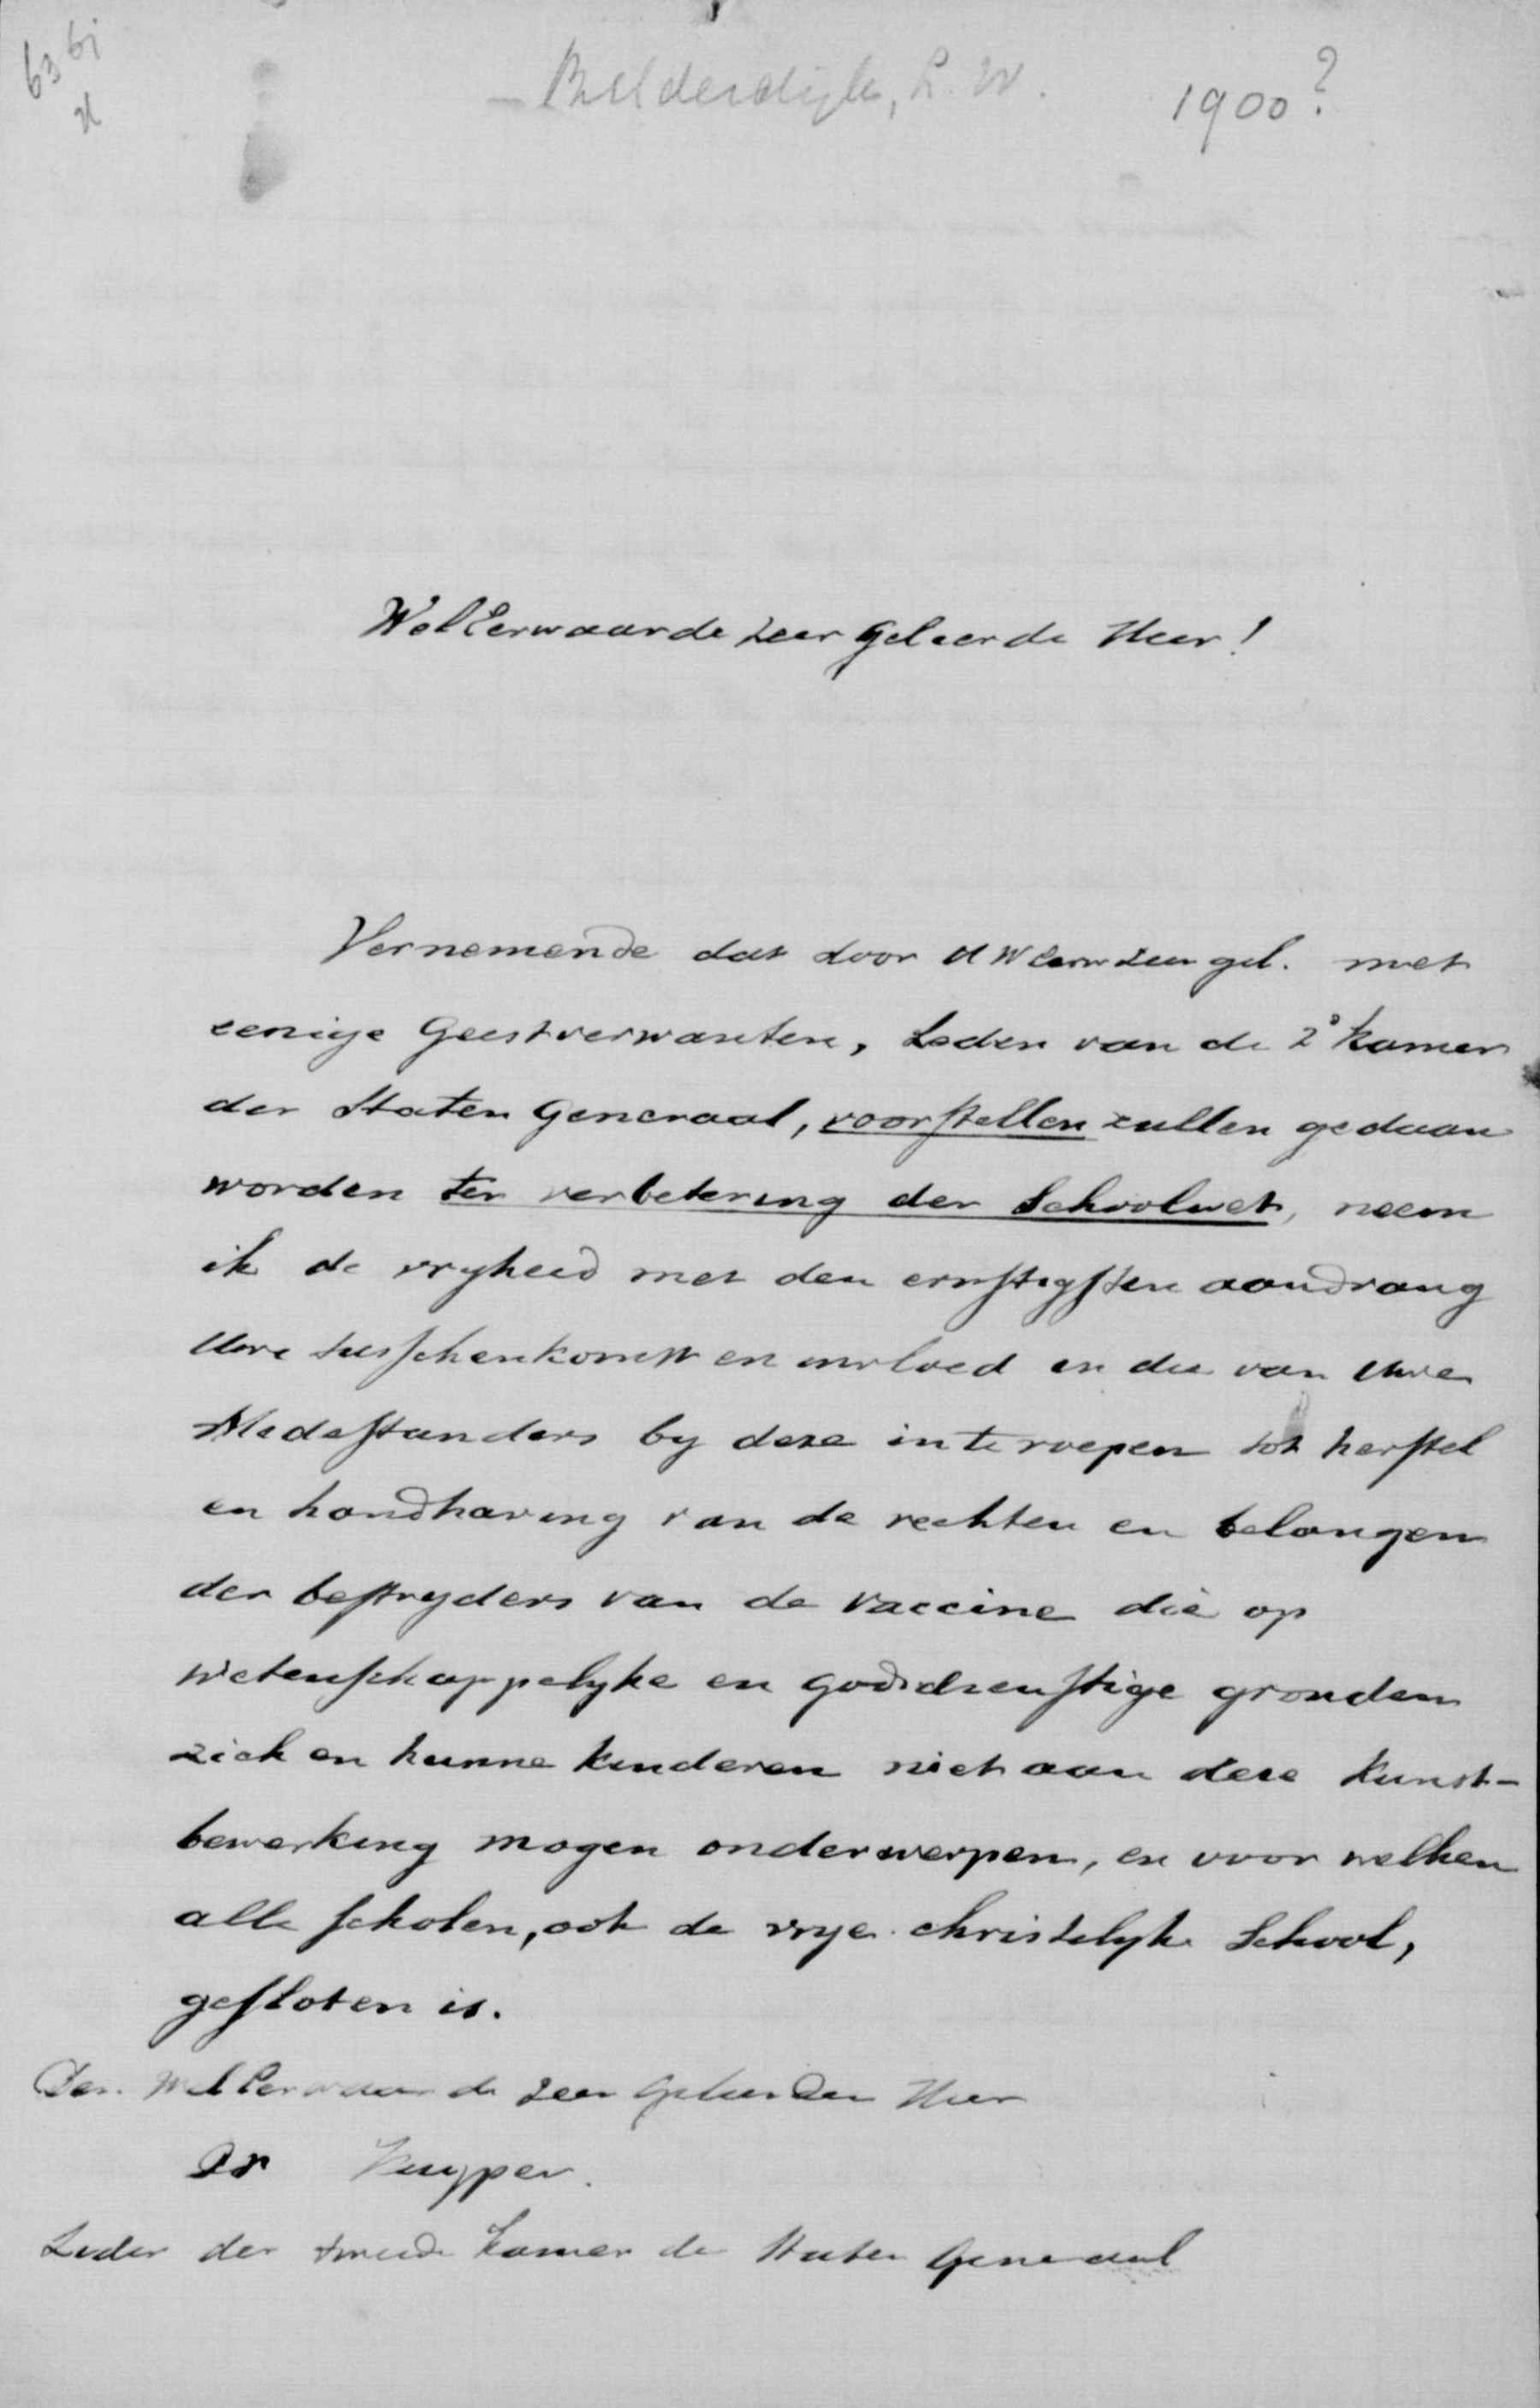 63 bij
Bilderdijk, L. W. 1900?
WelEerwaarde zeer geleerde Heer!
Vernemende dat door UWEerwzeergel. met
eenige Geestverwanten, Leden van de 2e Kamer
der Staten Generaal, voorstellen zullen gedaan
worden ter verbetering der Schoolwet, neem
ik de vryheid met den ernstigsten aandrang
Uwe tusschenkomst en invloed en die van Uwe
Medestanders by deze in te roepen tot herstel
en handhaving van de rechten en belangen
der bestryders van de vaccine die op
wetenschappelyke en godsdienstige gronden
zich en hunne kinderen niet aan deze Kunst-
bewerking mogen onderwerpen, en voor welken
alle scholen, ook de vrye christelyke School,
gesloten is.
Den WelEerwaarde zeer Geleerden Heer
Dr Kuyper.
Leden der tweede Kamer de Staten Generaal